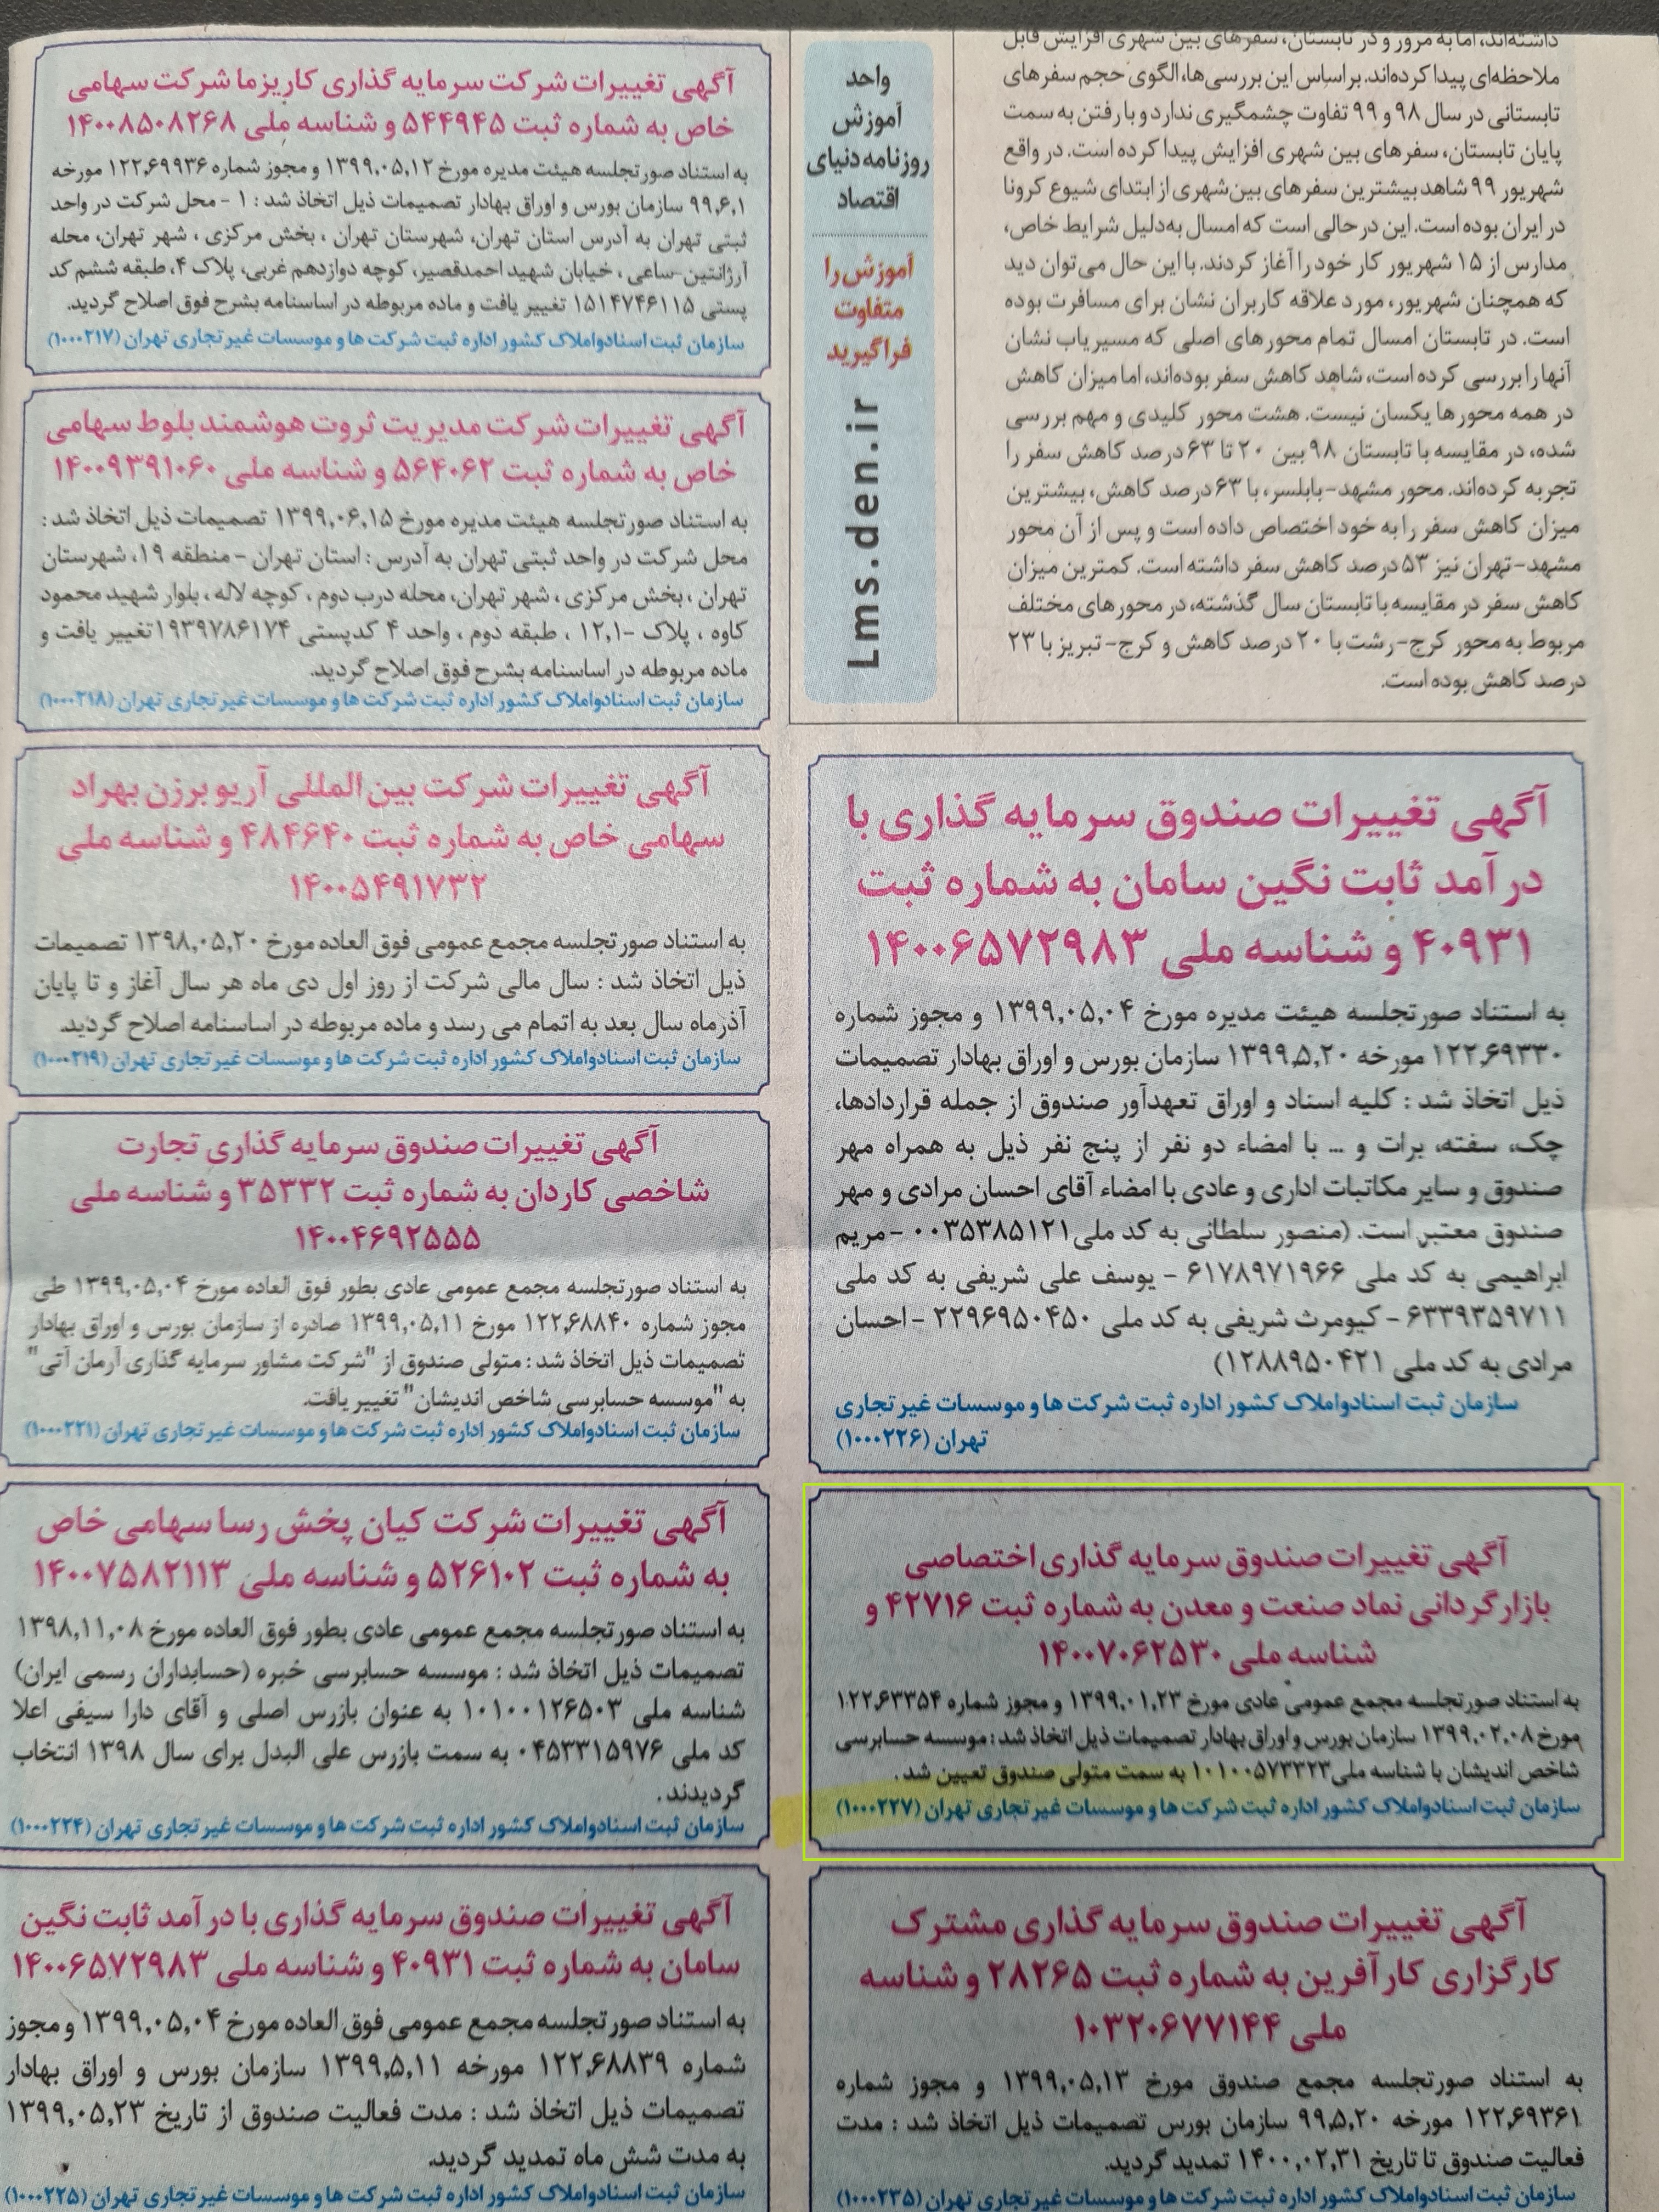 داشته‌اند، اما به مرور و در تابستان، سفرهای بین شهری افزایش قابل
ملاحظه‌ای پیدا کرده‌اند. براساس این بررسی‌ها، الگوی حجم سفرهای
تابستانی در سال ۹۸ و ۹۹ تفاوت چشمگیری ندارد و با رفتن به سمت
پایان تابستان، سفرهای بین شهری افزایش پیدا کرده است. در واقع
شهریور ۹۹ شاهد بیشترین سفرهای بین‌شهری از ابتدای شیوع کرونا
در ایران بوده است. این در حالی است که امسال به‌دلیل شرایط خاص،
مدارس از ۱۵ شهریور کار خود را آغاز کردند. با این حال می‌توان دید
که همچنان شهریور، مورد علاقه کاربران نشان برای مسافرت بوده
است. در تابستان امسال تمام محورهای اصلی که مسیریاب نشان
آنها را بررسی کرده است، شاهد کاهش سفر بوده‌اند، اما میزان کاهش
در همه محورها یکسان نیست. هشت محور کلیدی و مهم بررسی
شده، در مقایسه با تابستان ۹۸ بین ۲۰ تا ۶۳ درصد کاهش سفر را
تجربه کرده‌اند. محور مشهد-بابلسر، با ۶۳ درصد کاهش، بیشترین
میزان کاهش سفر را به خود اختصاص داده است و پس از آن محور
مشهد-تهران نیز ۵۳ درصد کاهش سفر داشته است. کمترین میزان
کاهش سفر در مقایسه با تابستان سال گذشته، در محورهای مختلف
مربوط به محور کرج-رشت با ۲۰ درصد کاهش و کرج-تبریز با ۲۳
درصد کاهش بوده است.
واحد
آموزش
روزنامه دنیای
اقتصاد
آموزش را
متفاوت
فراگیرید
Lms.den.ir
آگهی تغییرات شرکت سرمایه گذاری کاریزما شرکت سهامی
خاص به شماره ثبت ۵۴۴۹۴۵ و شناسه ملی ۱۴۰۰۸۵۰۸۲۶۸
به استناد صورتجلسه هیئت مدیره مورخ ۱۳۹۹,۰۵,۱۲ و مجوز شماره ۱۲۲,۶۹۹۳۶ مورخه
۹۹,۶,۱ سازمان بورس و اوراق بهادار تصمیمات ذیل اتخاذ شد : ۱ - محل شرکت در واحد
ثبتی تهران به آدرس استان تهران، شهرستان تهران ، بخش مرکزی ، شهر تهران، محله
آرژانتین-ساعی ، خیابان شهید احمدقصیر، کوچه دوازدهم غربی، پلاک ۴، طبقه ششم کد
پستی ۱۵۱۴۷۴۶۱۱۵ تغییر یافت و ماده مربوطه در اساسنامه بشرح فوق اصلاح گردید.
سازمان ثبت اسنادواملاک کشور اداره ثبت شرکت ها و موسسات غیرتجاری تهران (۱۰۰۰۲۱۷)
آگهی تغییرات شرکت مدیریت ثروت هوشمند بلوط سهامی
خاص به شماره ثبت ۵۶۴۰۶۲ و شناسه ملی ۱۴۰۰۹۳۹۱۰۶۰
به استناد صورتجلسه هیئت مدیره مورخ ۱۳۹۹,۰۶,۱۵ تصمیمات ذیل اتخاذ شد :
محل شرکت در واحد ثبتی تهران به آدرس : استان تهران - منطقه ۱۹، شهرستان
تهران ، بخش مرکزی ، شهر تهران، محله درب دوم ، کوچه لاله ، بلوار شهید محمود
کاوه ، پلاک -۱۲,۱ ، طبقه دوم ، واحد ۴ کدپستی ۱۹۳۹۷۸۶۱۷۴تغییر یافت و
ماده مربوطه در اساسنامه بشرح فوق اصلاح گردید.
سازمان ثبت اسنادواملاک کشور اداره ثبت شرکت ها و موسسات غیرتجاری تهران (۱۰۰۰۲۱۸)
آگهی تغییرات شرکت بین المللی آریو برزن بهراد
سهامی خاص به شماره ثبت ۴۸۴۶۴۰ و شناسه ملی
۱۴۰۰۵۴۹۱۷۳۲
به استناد صورتجلسه مجمع عمومی فوق العاده مورخ ۱۳۹۸,۰۵,۲۰ تصمیمات
ذیل اتخاذ شد : سال مالی شرکت از روز اول دی ماه هر سال آغاز و تا پایان
آذرماه سال بعد به اتمام می رسد و ماده مربوطه در اساسنامه اصلاح گردید.
سازمان ثبت اسنادواملاک کشور اداره ثبت شرکت ها و موسسات غیرتجاری تهران (۱۰۰۰۲۱۹)
آگهی تغییرات صندوق سرمایه گذاری تجارت
شاخصی کاردان به شماره ثبت ۳۵۳۳۲ و شناسه ملی
۱۴۰۰۴۶۹۲۵۵۵
به استناد صورتجلسه مجمع عمومی عادی بطور فوق العاده مورخ ۱۳۹۹,۰۵,۰۴ طی
مجوز شماره ۱۲۲,۶۸۸۴۰ مورخ ۱۳۹۹,۰۵,۱۱ صادره از سازمان بورس و اوراق بهادار
تصمیمات ذیل اتخاذ شد : متولی صندوق از "شرکت مشاور سرمایه گذاری آرمان آتی"
به "موسسه حسابرسی شاخص اندیشان" تغییر یافت.
سازمان ثبت اسنادواملاک کشور اداره ثبت شرکت ها و موسسات غیرتجاری تهران (۱۰۰۰۲۲۱)
آگهی تغییرات شرکت کیان پخش رسا سهامی خاص
به شماره ثبت ۵۲۶۱۰۲ و شناسه ملی ۱۴۰۰۷۵۸۲۱۱۳
به استناد صورتجلسه مجمع عمومی عادی بطور فوق العاده مورخ ۱۳۹۸,۱۱,۰۸
تصمیمات ذیل اتخاذ شد : موسسه حسابرسی خبره (حسابداران رسمی ایران)
شناسه ملی ۱۰۱۰۰۱۲۶۵۰۳ به عنوان بازرس اصلی و آقای دارا سیفی اعلا
کد ملی ۰۴۵۳۳۱۵۹۷۶ به سمت بازرس علی البدل برای سال ۱۳۹۸ انتخاب
گردیدند .
سازمان ثبت اسنادواملاک کشور اداره ثبت شرکت ها و موسسات غیرتجاری تهران (۱۰۰۰۲۲۴)
آگهی تغییرات صندوق سرمایه گذاری با درآمد ثابت نگین
سامان به شماره ثبت ۴۰۹۳۱ و شناسه ملی ۱۴۰۰۶۵۷۲۹۸۳
به استناد صورتجلسه مجمع عمومی فوق العاده مورخ ۱۳۹۹,۰۵,۰۴ و مجوز
شماره ۱۲۲,۶۸۸۳۹ مورخه ۱۳۹۹,۵,۱۱ سازمان بورس و اوراق بهادار
تصمیمات ذیل اتخاذ شد : مدت فعالیت صندوق از تاریخ ۱۳۹۹,۰۵,۲۳
به مدت شش ماه تمدید گردید.
سازمان ثبت اسنادواملاک کشور اداره ثبت شرکت ها و موسسات غیرتجاری تهران (۱۰۰۰۲۲۵)
آگهی تغییرات صندوق سرمایه گذاری با
درآمد ثابت نگین سامان به شماره ثبت
۴۰۹۳۱ و شناسه ملی ۱۴۰۰۶۵۷۲۹۸۳
به استناد صورتجلسه هیئت مدیره مورخ ۱۳۹۹,۰۵,۰۴ و مجوز شماره
۱۲۲,۶۹۳۳۰ مورخه ۱۳۹۹,۵,۲۰ سازمان بورس و اوراق بهادار تصمیمات
ذیل اتخاذ شد : کلیه اسناد و اوراق تعهدآور صندوق از جمله قراردادها،
چک، سفته، برات و ... با امضاء دو نفر از پنج نفر ذیل به همراه مهر
صندوق و سایر مکاتبات اداری و عادی با امضاء آقای احسان مرادی و مهر
صندوق معتبر است. (منصور سلطانی به کد ملی ۰۰۳۵۳۸۵۱۲۱ - مریم
ابراهیمی به کد ملی ۶۱۷۸۹۷۱۹۶۶ - یوسف علی شریفی به کد ملی
۶۳۳۹۳۵۹۷۱۱ - کیومرث شریفی به کد ملی ۲۲۹۶۹۵۰۴۵۰ - احسان
مرادی به کد ملی ۱۲۸۸۹۵۰۴۲۱)
سازمان ثبت اسنادواملاک کشور اداره ثبت شرکت ها و موسسات غیرتجاری
تهران (۱۰۰۰۲۲۶)
آگهی تغییرات صندوق سرمایه گذاری اختصاصی
بازارگردانی نماد صنعت و معدن به شماره ثبت ۴۲۷۱۶ و
شناسه ملی ۱۴۰۰۷۰۶۲۵۳۰
به استناد صورتجلسه مجمع عمومی عادی مورخ ۱۳۹۹,۰۱,۲۳ و مجوز شماره ۱۲۲,۶۳۳۵۴
مورخ ۱۳۹۹,۰۲,۰۸ سازمان بورس و اوراق بهادار تصمیمات ذیل اتخاذ شد : موسسه حسابرسی
شاخص اندیشان با شناسه ملی ۱۰۱۰۰۵۷۳۳۲۳ به سمت متولی صندوق تعیین شد .
سازمان ثبت اسنادواملاک کشور اداره ثبت شرکت ها و موسسات غیرتجاری تهران (۱۰۰۰۲۲۷)
آگهی تغییرات صندوق سرمایه گذاری مشترک
کارگزاری کارآفرین به شماره ثبت ۲۸۲۶۵ و شناسه
ملی ۱۰۳۲۰۶۷۷۱۴۴
به استناد صورتجلسه مجمع صندوق مورخ ۱۳۹۹,۰۵,۱۳ و مجوز شماره
۱۲۲,۶۹۳۶۱ مورخه ۹۹,۵,۲۰ سازمان بورس تصمیمات ذیل اتخاذ شد : مدت
فعالیت صندوق تا تاریخ ۱۴۰۰,۰۲,۳۱ تمدید گردید.
سازمان ثبت اسنادواملاک کشور اداره ثبت شرکت ها و موسسات غیرتجاری تهران (۱۰۰۰۲۳۵)